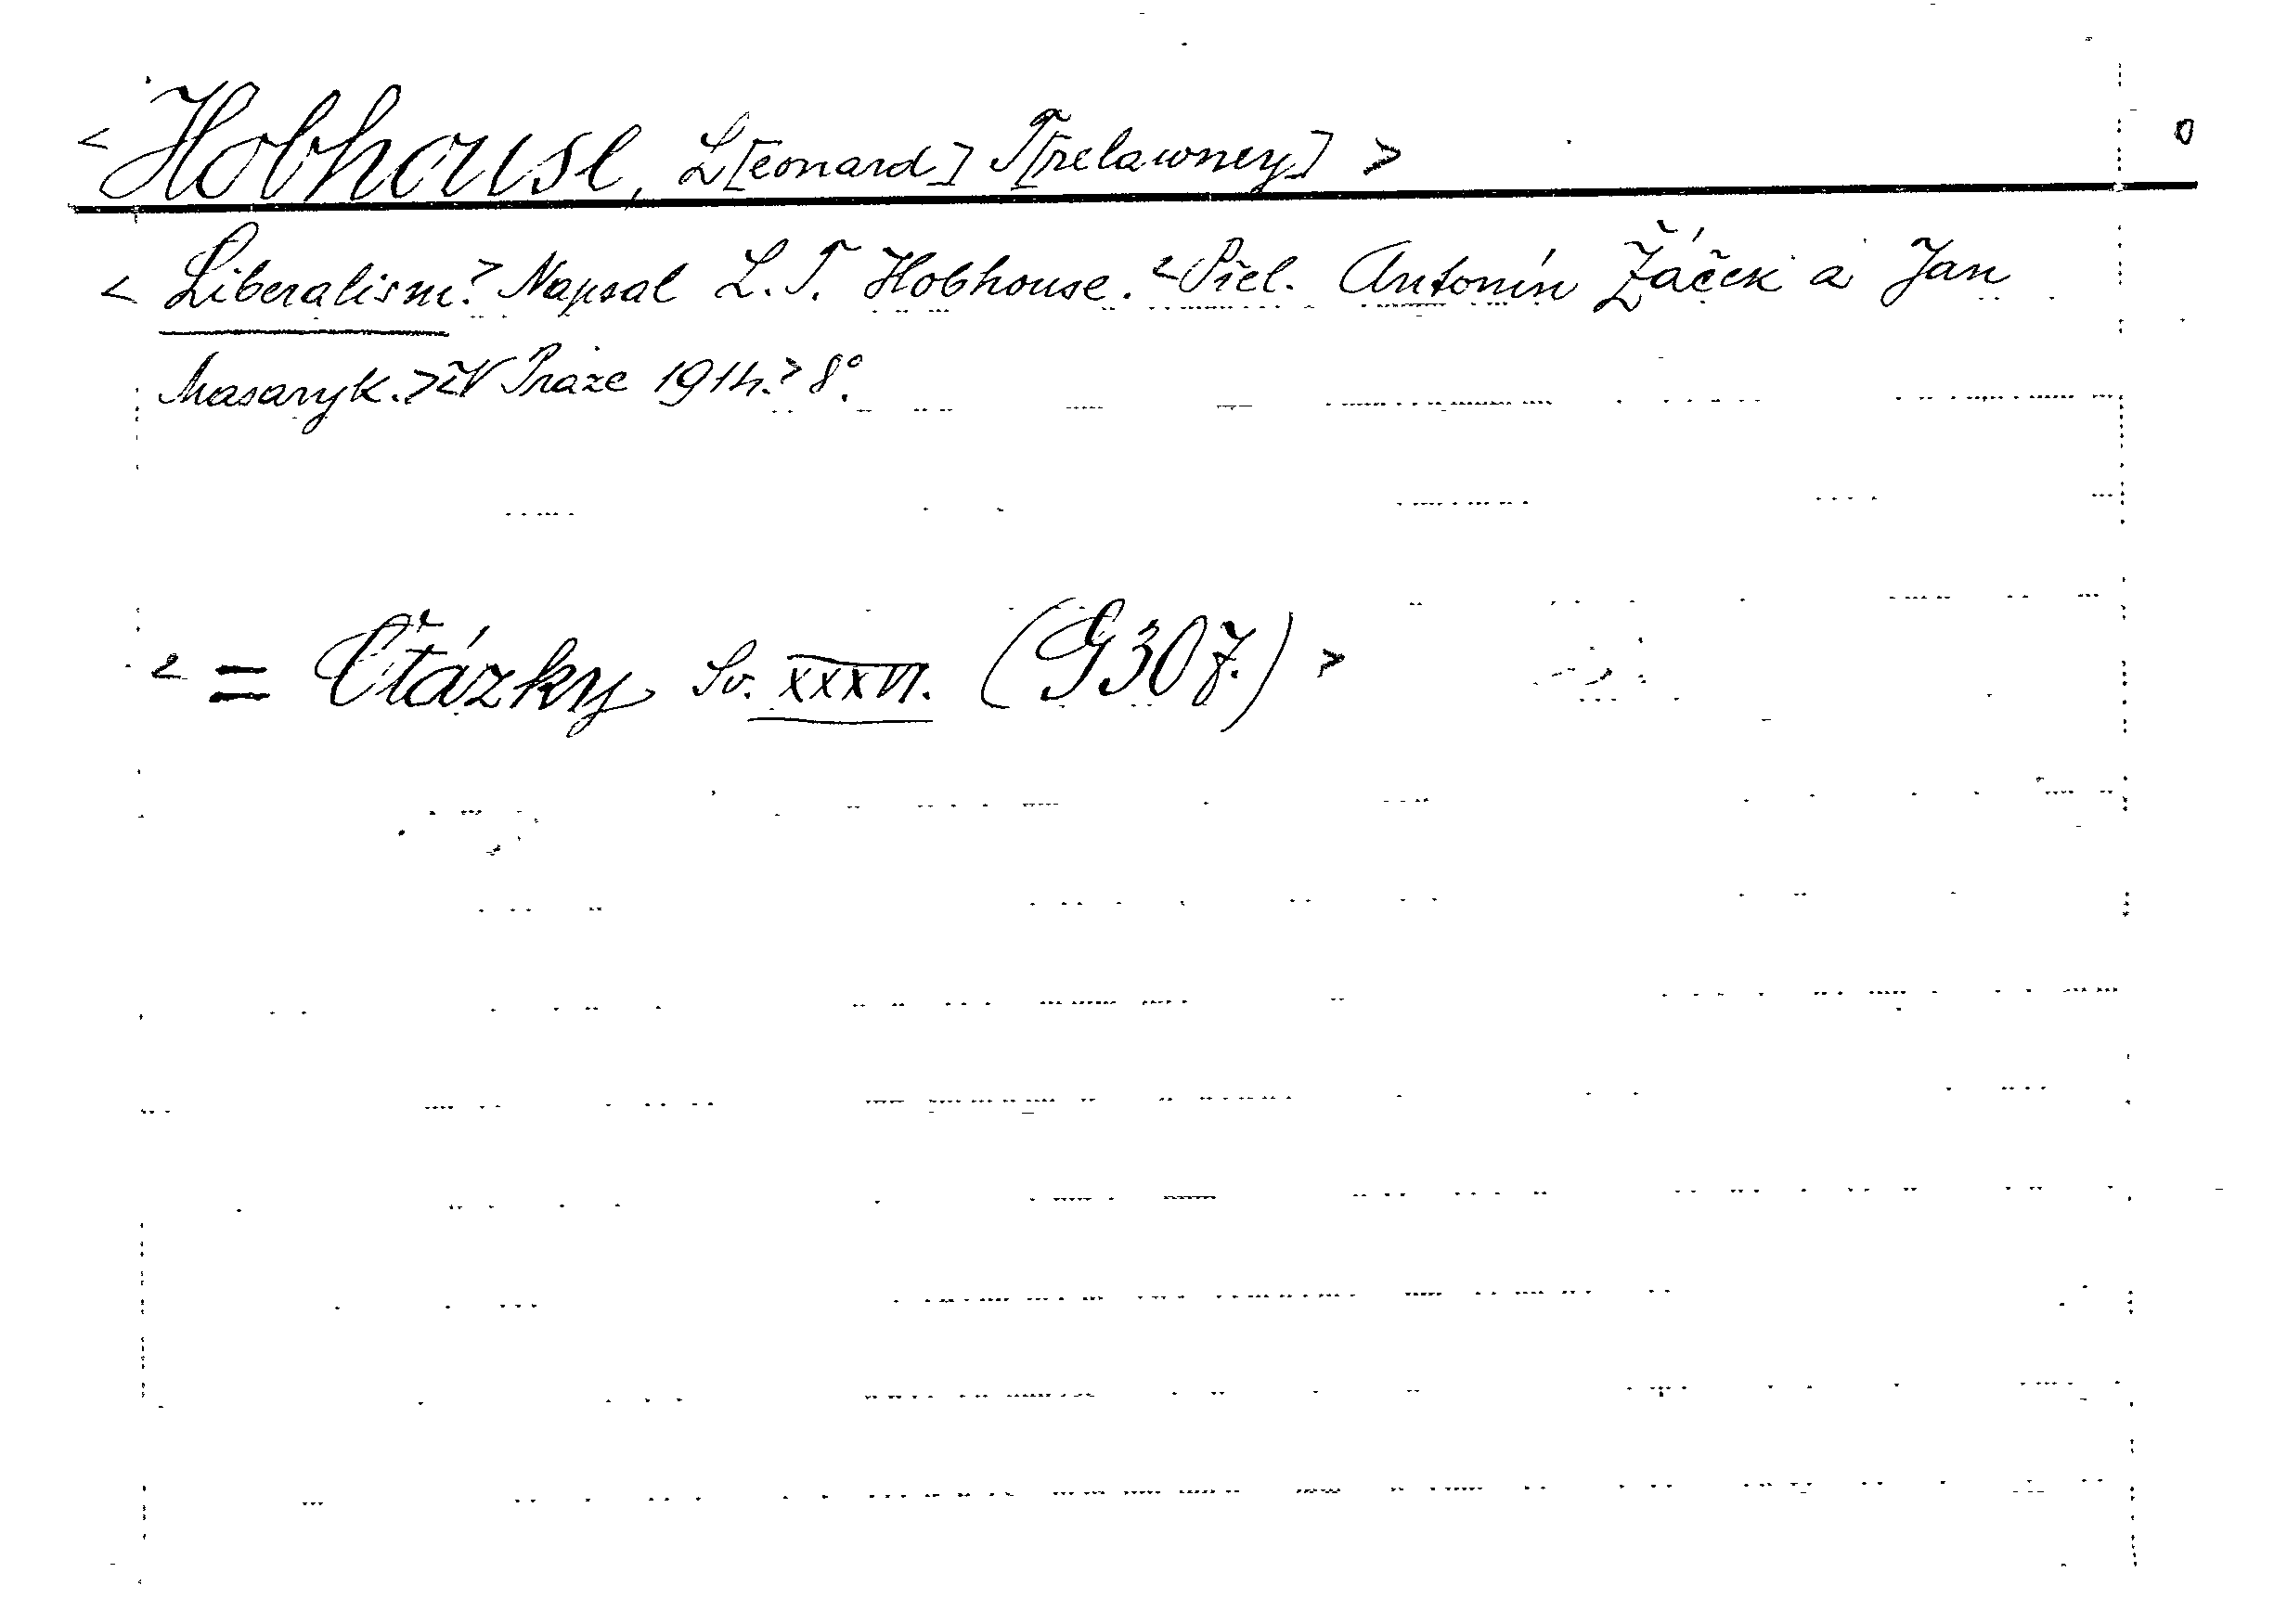 < Hobhouse, L[eonard] T[relawney] > 0
< Liberalism.> Napsal L. T. Hobhouse. <Přel. Antonín Žáček a Jan
Masaryk.> <V Praze 1914.> 8°.
< = Otázky Sv. XXXVI. (G307.) >